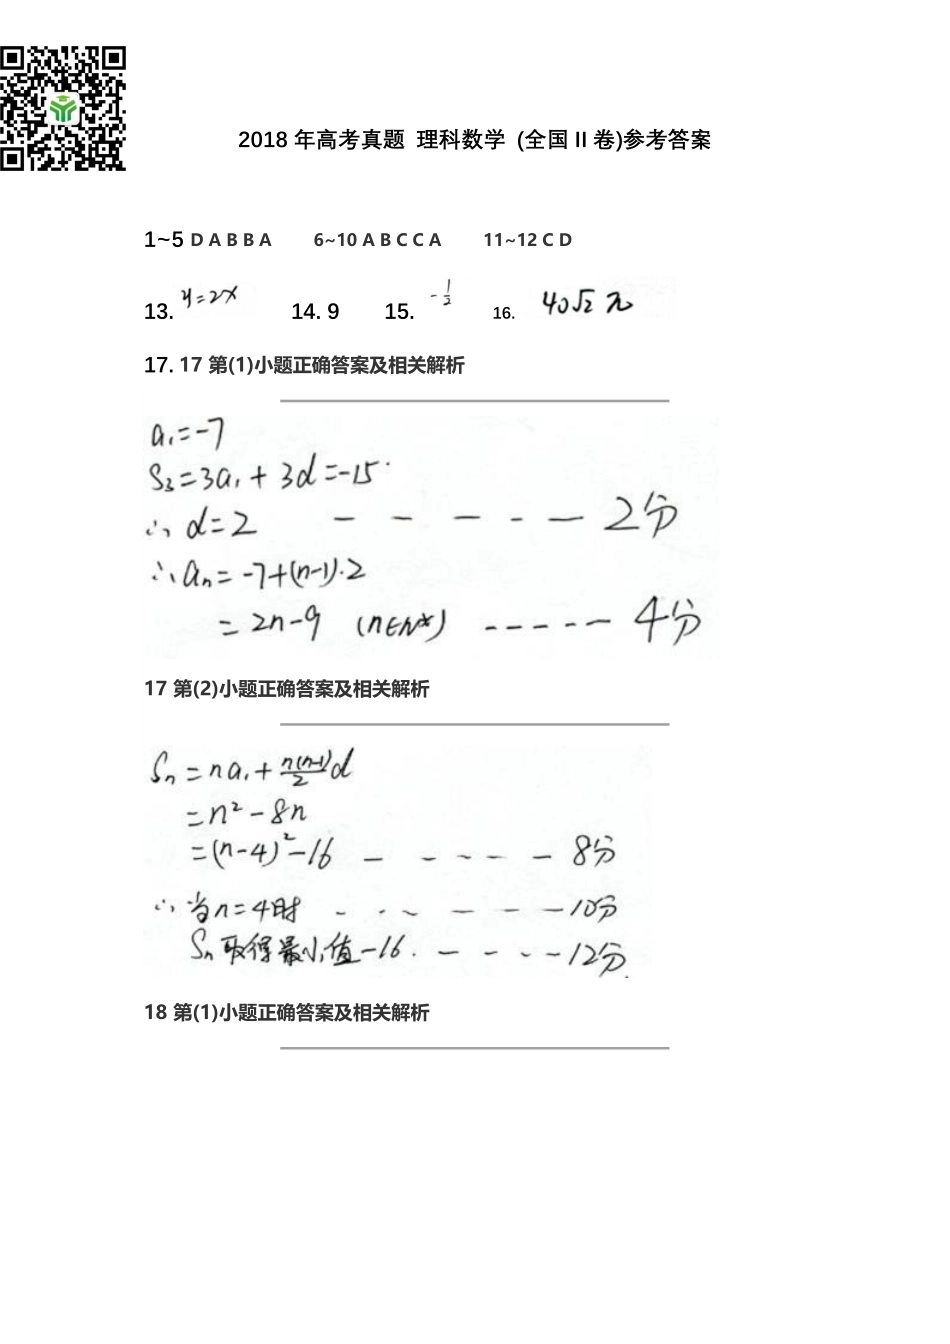 2018 年高考真题 理科数学 (全国 II 卷)参考答案
1~5 D A B B A 6~10 A B C C A 11~12 C D
13. y=2x 14. 9 15. -1/2 16. 40√2 π
17. 17 第(1)小题正确答案及相关解析
a₁=-7
S₃=3a₁+3d=-15.
∴d=2 - - - - — 2分
∴aₙ=-7+(n-1)·2
=2n-9 (n∈N*) ----— 4分
17 第(2)小题正确答案及相关解析
Sₙ=na₁+n(n-1)/2 d
=n²-8n
=(n-4)²-16 — - - - - — 8分
∴当n=4时 - - - — - — 10分
Sₙ取得最小值-16. — - - - 12分
18 第(1)小题正确答案及相关解析